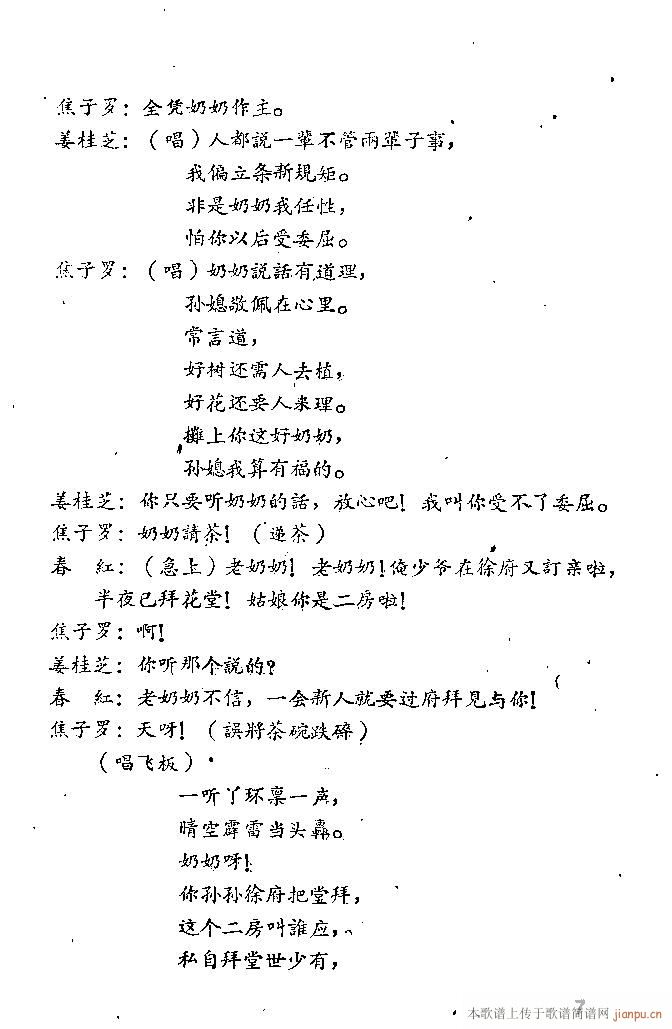 焦子罗：全凭奶奶作主。
姜桂芝：（唱）人都説一輩不管兩輩子事，
我偏立条新規矩。
非是奶奶我任性，
怕你以后受委屈。
焦子罗：（唱）奶奶説話有道理，
孙媳敬佩在心里。
常言道，
好树还需人去植，
好花还要人来理。
攤上你这好奶奶，
孙媳我算有福的。
姜桂芝：你只要听奶奶的話，放心吧！我叫你受不了委屈。
焦子罗：奶奶請茶！（递茶）
春　紅：（急上）老奶奶！老奶奶！俺少爷在徐府又訂亲啦，
半夜已拜花堂！姑娘你是二房啦！
焦子罗：啊！
姜桂芝：你听那个説的？
春　紅：老奶奶不信，一会新人就要过府拜見与你！
焦子罗：天呀！（誤將茶碗跌碎）
（唱飞板）
一听丫环禀一声，
晴空霹雷当头轟。
奶奶呀！
你孙孙徐府把堂拜，
这个二房叫誰应，
私自拜堂世少有，
7
本歌谱上传于歌谱简谱网
jianpu.cn